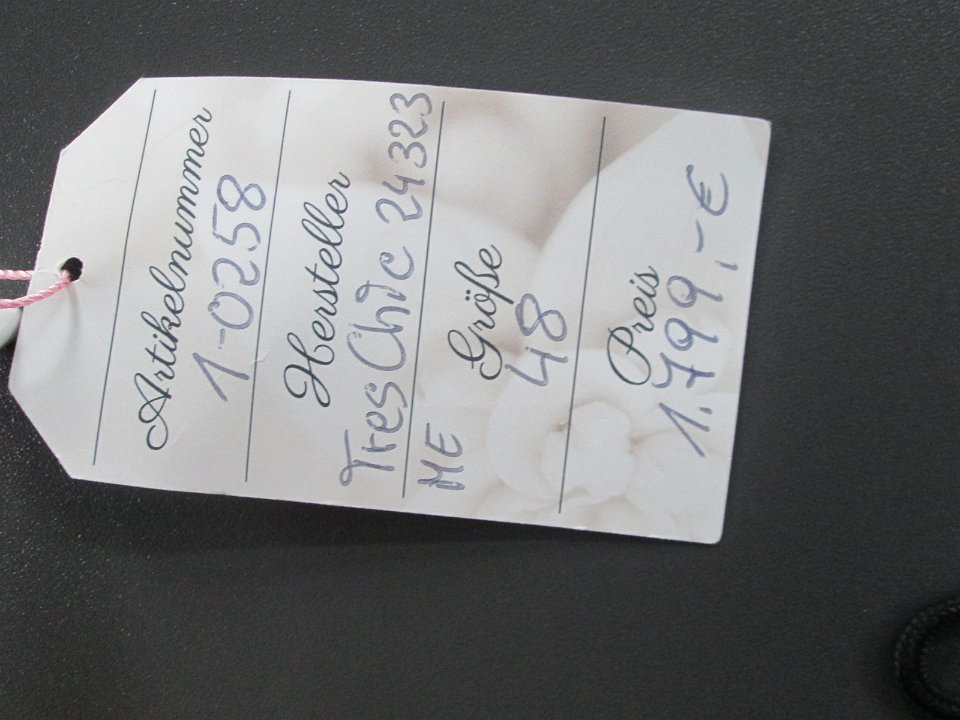 Artikelnummer
1-0258
Hersteller
TresChic 24323
ME
Größe
48
Preis
1.799,-€